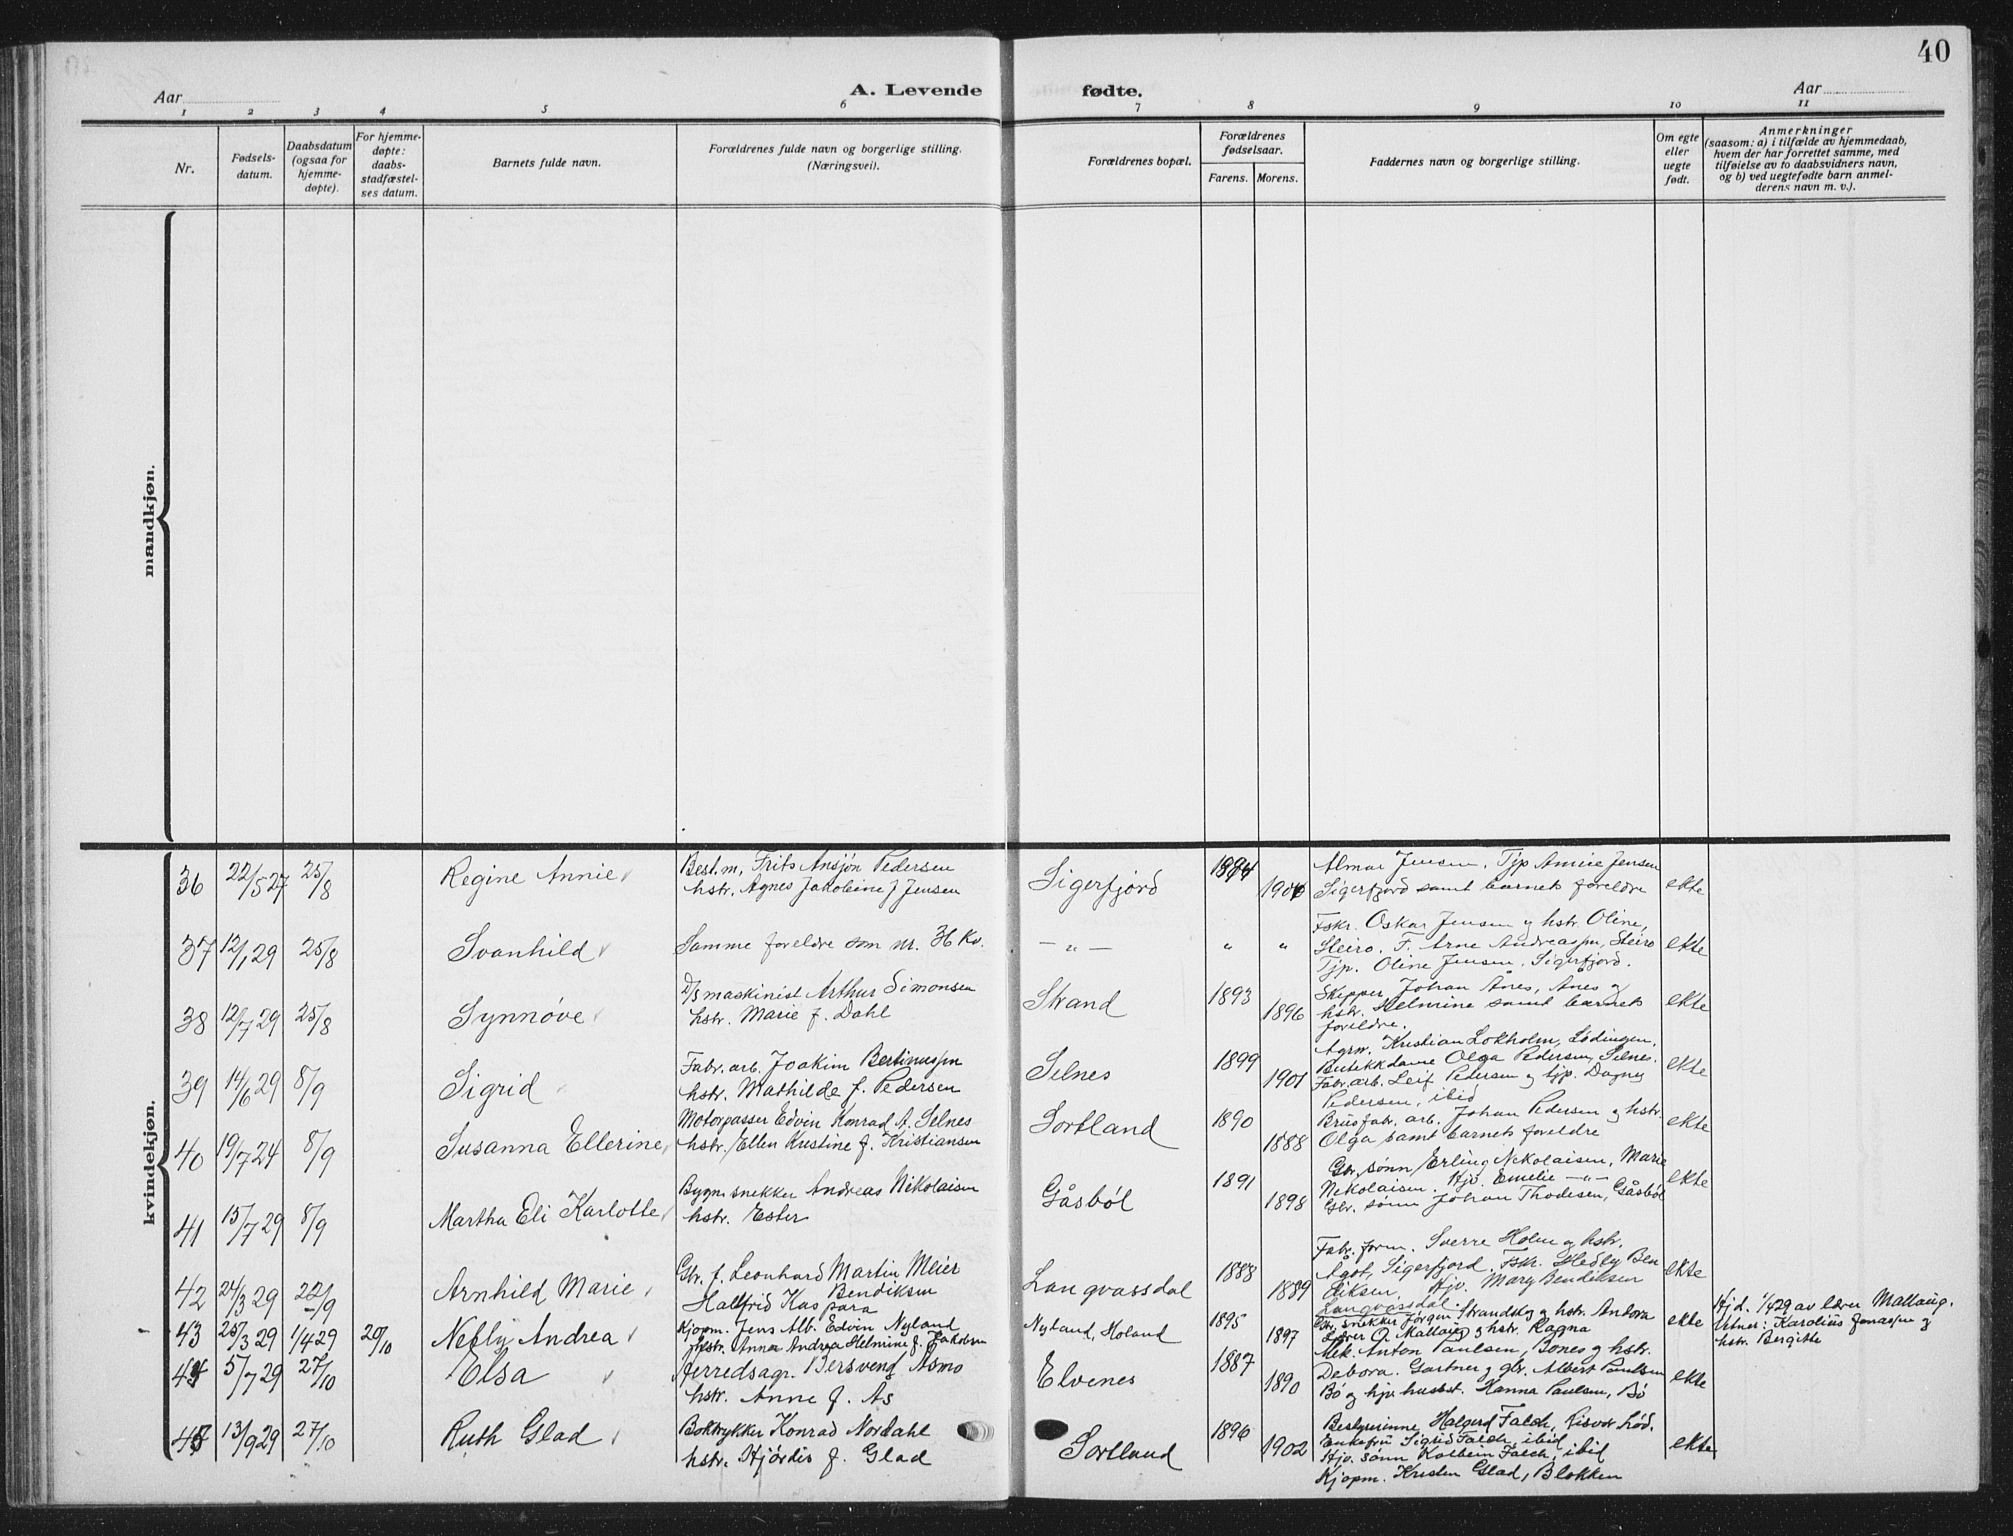 40
A. Levende fødte.
Aar Aar
1 2 3 4 5 6 7 8 9 10 11
Nr.
Fødsels-
datum.
Daabsdatum
(ogsaa for
hjemme-
døpte).
For hjemme-
døpte:
daabs-
stadfæstel-
ses datum.
Barnets fulde navn.
Forældrenes fulde navn og borgerlige stilling.
(Næringsvei).
Forældrenes bopæl.
Forældrenes
fødselsaar.
Farens. Morens.
Faddernes navn og borgerlige stilling.
Om egte
eller
uegte
født.
Anmerkninger
(saasom: a) i tilfælde av hjemmedaab,
hvem der har forrettet samme, med
tilføielse av to daabsvidners navn,
og b) ved uegtefødte barn anmel-
derens navn m. v.).
mandkjøn.
kvindekjøn.
36 22/5 27 25/8 Regine Annie
Best.m, Frits Ansjøn Pedersen
hstr. Agnes Jakobine f Jensen
Sigerfjord
Almar Jensen. Tjp Amie Jensen
Sigerfjord samt barnets foreldre
ekte
37 12/1 29 25/8 Svanhild
Samme foreldre som nr. 36 Kv.
— „ — „ „
Fskr. Oskar Jensen og hstr Oline,
Steiro. F. Arne Andreassen, Steiro
Tjp. Oline Jensen. Sigerfjord.
ekte
38 12/7 29 25/8 Synnøve
D/s maskinist Arthur Simonsen
hstr. Marie f. Dahl
Strand 1893 1896
Skipper Johan Ånes, Ånes og
hstr. Helmine samt barnets
foreldre.
ekte
39 14/6 29 8/9 Sigrid
Fabr. arb. Joakim Bertinussen
hstr. Mathilde f. Pedersen
Selnes 1899 1901
Agrn. Kristian Lokholm, Lødingen.
Butikkdame Olga Pedersen, Selnes.
Fabr. arb. Leif Pedersen og tjp. Dagny
Pedersen, ibid
ekte
40 19/7 24 8/9 Susanna Ellerine
Motorpasser Edvin Konrad A. Selnes
hstr. Ellen Kristine f. Kristiansen
Sortland 1890 1888
Brusfabr. arb. Johan Pedersen og hstr.
Olga samt barnets foreldre
ekte
41 15/7 29 8/9 Martha Eli Karlotte
Bygn. snekker Andreas Nikolaisen
hstr. Ester
Gåsbøl 1891 1898
Gbr. sønn Erling Nikolaisen, Marie
Nikolaisen. Hjv. Emelie — „ —
Gbr. sønn Johan Thodesen, Gåsbøl
ekte
42 24/3 29 22/9 Arnhild Marie
Gbr. f. Leonhard Martin Meier
Bendiksen
Hallfrid Kaspara
Langvassdal 1888 1889
Fabr. form. Sverre Holm og hstr.
Agot, Sigerfjord. Fskr. Hedly Ben
diksen, Hjv. Mary Bendiksen
Langvassdal.
ekte
43 25/3 29 1/4 29 20/10 Nelly Andrea
Kjøpm. Jens Alb. Edvin Nyland
hstr. Anna Andrea Helmine f. Jakobsen
Nyland, Holand 1895 1897
Gbr. snekker Jørgen Strandskog og hstr. Andora
Lærer O. Mattaug og hstr. Ragna
ekte
Hjd. 1/4 29 av lærer Mattaug.
Vitner: Karolius Jonassen og
hstr. Bergitte
44 5/7 29 27/10 Elsa
Herredsagr. Bersveng Åsmo
hstr. Anne f. As
Elvenes 1887 1890
Mek. Anton Paulsen, Bones og hstr.
Debora. Gartner og gbr. Albert Paulsen
Bø og hjv husbst. Hanna Paulsen, Bø
ekte
45 13/9 29 27/10 Ruth Glad
Boktrykker Konrad Nordahl
hstr. Hjørdis f. Glad
Sortland 1896 1902
Bestyrerinne Halgerd Falch, Risvær Lød.
Enkefru Sigrid Falch, ibid
Hjv. sønn Kolbein Falch, ibid
Kjøpm. Kristen Glad, Blokken
ekte